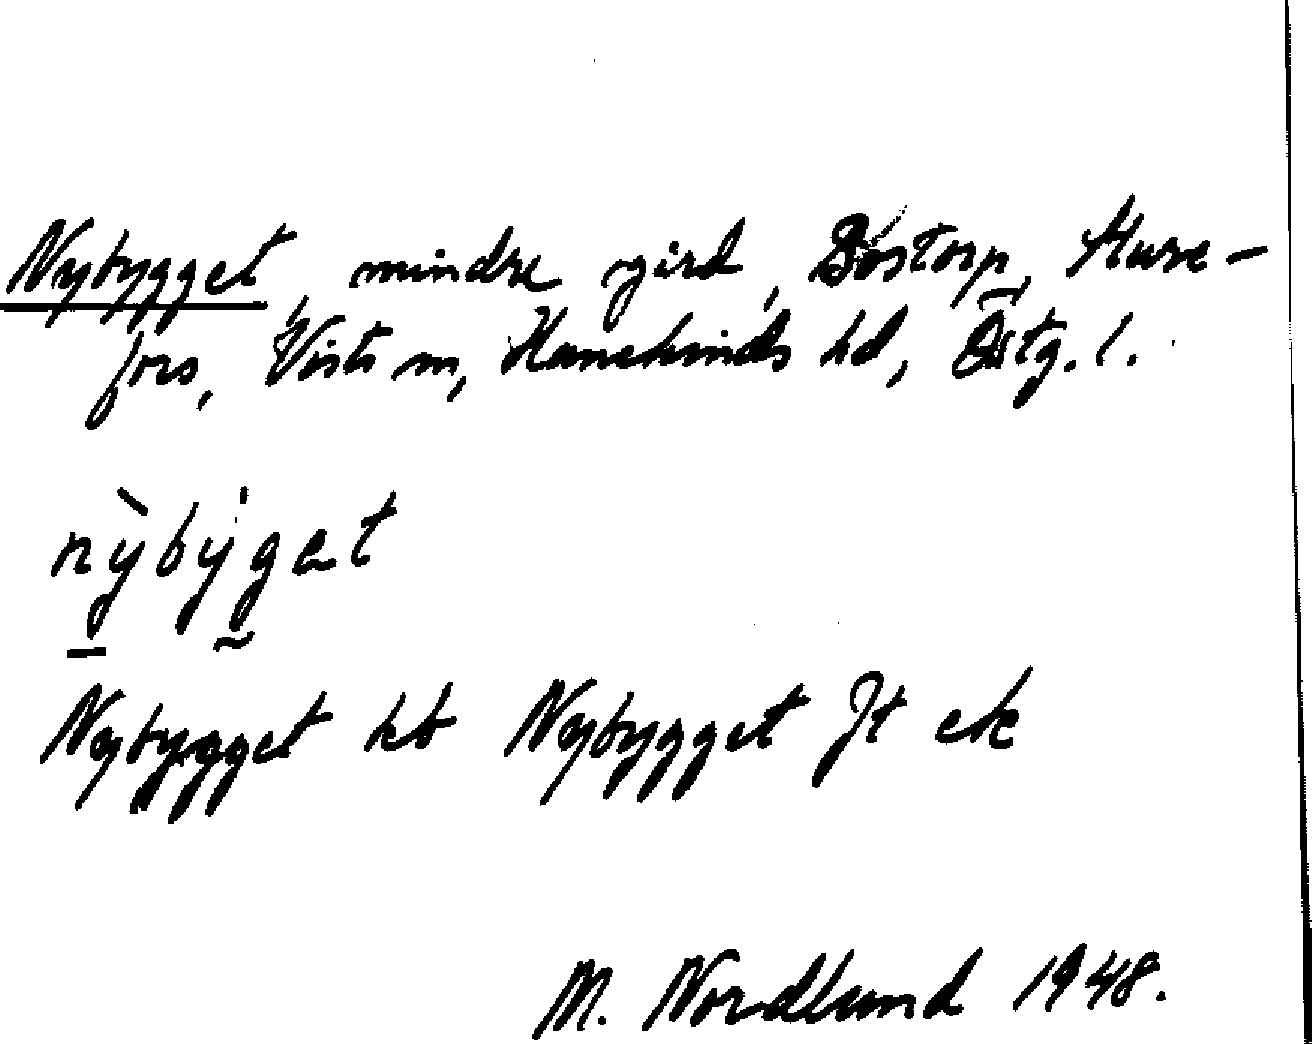 Nybygget, mindre gård, Bostorp, Sture-
fors, Vists sn, Hanekinds hd, Östg. l.
nỳby̍get
Nybygget kb Nybygget Jt ek
M. Nordlund 1948.